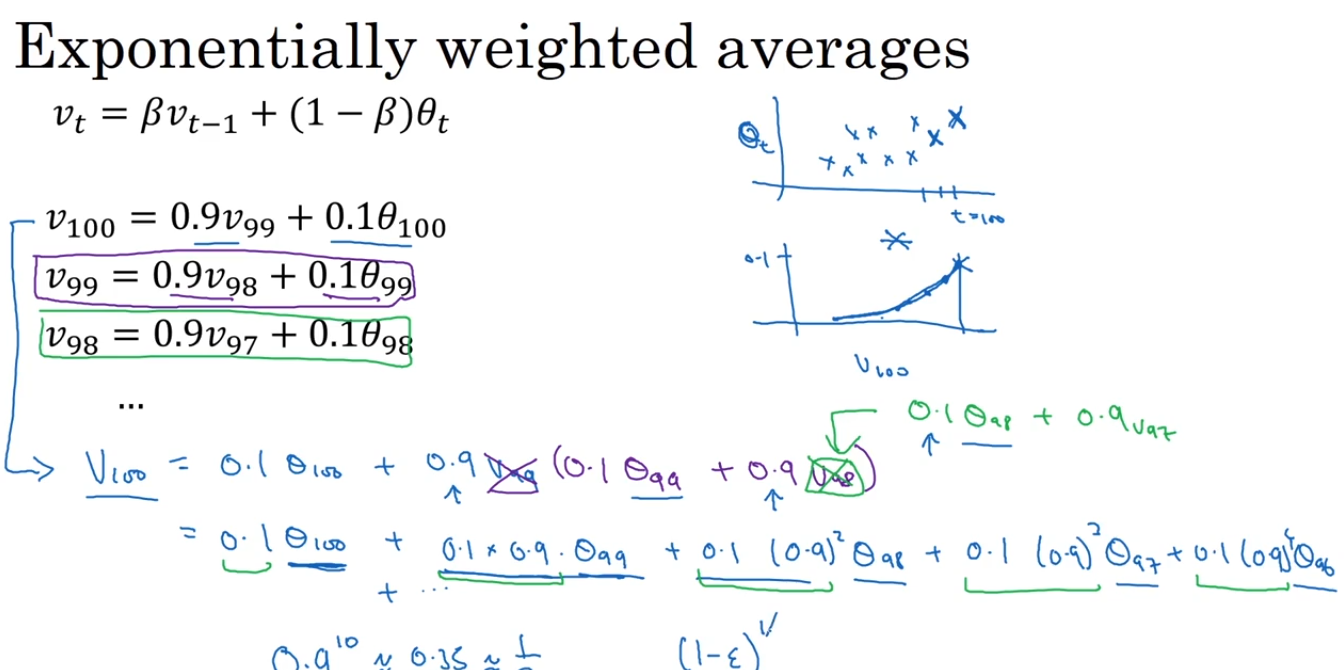 Exponentially weighted averages
v_t = βv_{t−1} + (1 − β)θ_t
θ_t
t=100
v_100 = 0.9v_99 + 0.1θ_100
0.1
v_99 = 0.9v_98 + 0.1θ_99
v_98 = 0.9v_97 + 0.1θ_98
V_100
...
0.1 θ_98 + 0.9 v_97
V_100 = 0.1 θ_100 + 0.9 v_99 (0.1 θ_99 + 0.9 v_98)
= 0.1 θ_100 + 0.1 × 0.9 · θ_99 + 0.1 (0.9)^2 θ_98 + 0.1 (0.9)^3 θ_97 + 0.1 (0.9)^4 θ_96
+ ...
0.9^10 ≈ 0.35 ≈ (1-ε)